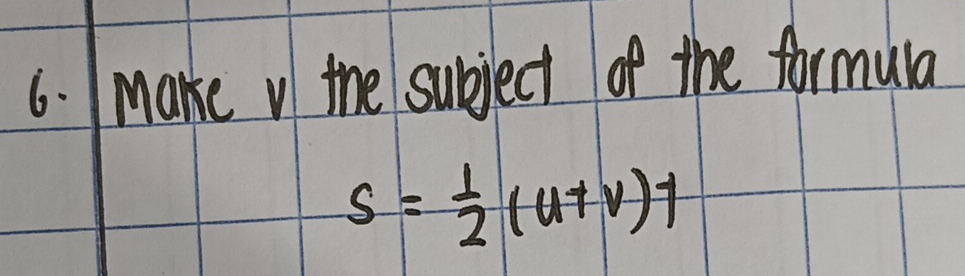 6. Make v the subject of the formula
s = 1/2 (u+v)t